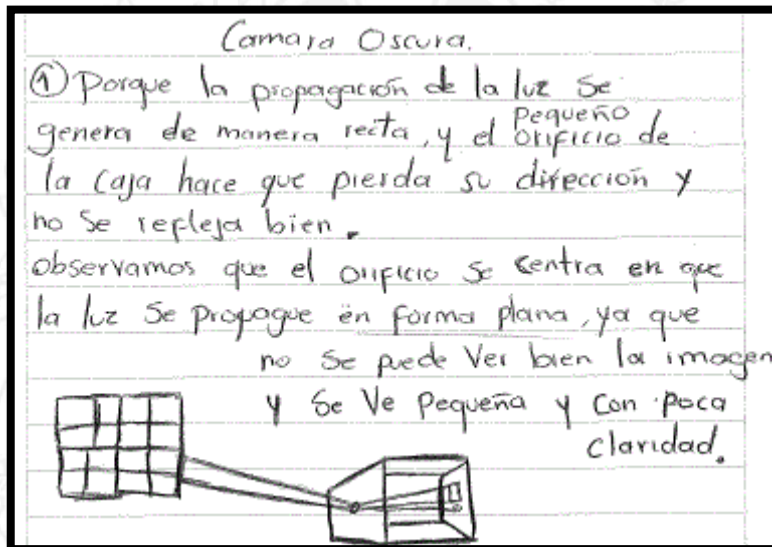 Camara Oscura.
① Porque la propagación de la luz se
genera de manera recta, y el pequeño orificio de
la caja hace que pierda su dirección y
no se refleja bien.
observamos que el orificio se centra en que
la luz se propague en forma plana, ya que
no se puede ver bien la imagen
y se ve pequeña y con poca
claridad.